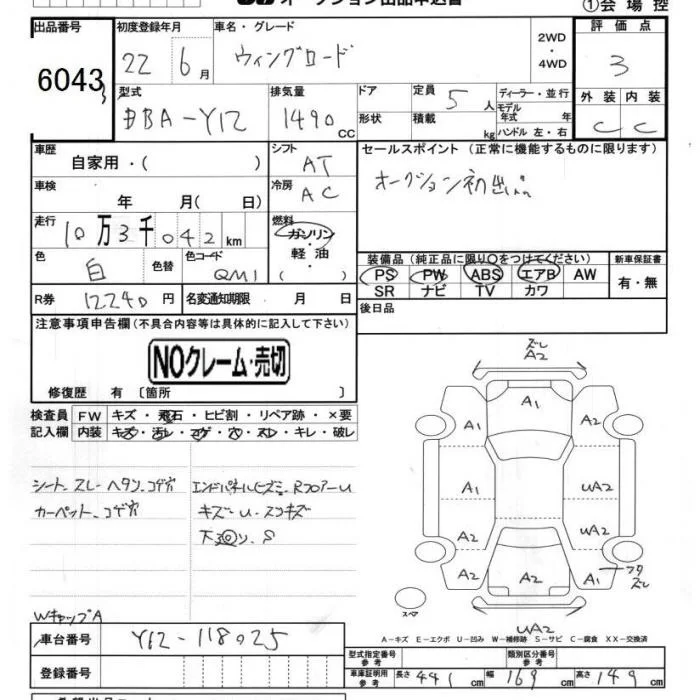 オークション出品申込書
①会場控
出品番号 6043
初度登録年月 22 6月
車名・グレード ウイングロード 2WD・4WD
評価点 3
型式 DBA-Y12
排気量 1490 CC
ドア 形状
定員 5人 積載 kg
ディーラー・並行 モデル年式 年 ハンドル 左・右
外装 C 内装 C
車歴 自家用・( )
シフト AT
セールスポイント (正常に機能するものに限ります)
オークション初出品
車検 年 月( 日)
冷房 AC
走行 10万3千042km
燃料 ガソリン・軽油・( )
色 白 色替 色コード QM1
装備品 (純正品に限り○をつけてください)
PS PW ABS エアB AW
SR ナビ TV カワ
新車保証書 有・無
R券 12240円 名変通知期限 月 日
後日品
注意事項申告欄 (不具合内容等は具体的に記入して下さい)
NOクレーム・売切
修復歴 有 〔箇所 〕
検査員記入欄
FW キズ・飛石・ヒビ割・リペア跡・×要
内装 キズ・汚レ・コゲ・穴・スレ・キレ・破レ
シート、スレ・ヘタリ、コゲ穴
カーペット、コゲ穴
エンドパネルヒズミ、RフロアーU
キズ・U・スリキズ
下廻り、S
WキャップA
ズレ
A2
A1
A1
A2
A1
UA2
A2
UA2
A2
A2
A1
フタズレ
スペア
UA2
A-キズ E-エクボ U-凹み W-補修跡 S-サビ C-腐食 XX-交換済
車台番号 Y12-118025
登録番号
型式指定番号 参考
類別区分番号 参考
車庫証明用 参考 長さ 441cm 幅 169cm 高さ 149cm